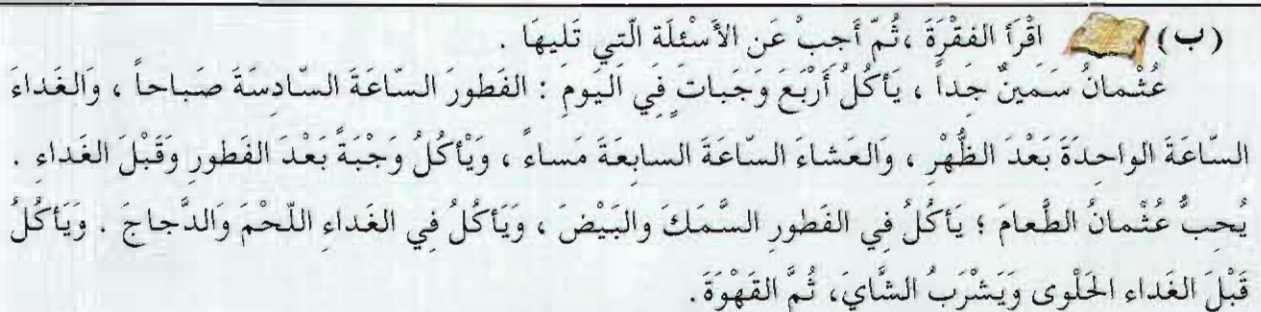 (ب) اقْرَأ الفقْرَةَ ،ثُمّ أَجِبْ عَن الأَسْئِلَة الّتِي تَلِيهَا .
عُثْمانُ سَمِينٌ جِداً ، يَأكُلُ أَرْبَعَ وَجَباتٍ فِي اليَومِ : الفَطورَ السّاعَةَ السّادِسَةَ صَباحاً ، وَالغَداءَ
السّاعَةَ الواحِدَةَ بَعْدَ الظُّهْرِ ، وَالعَشاءَ السّاعَةَ السابِعَةَ مَساءً ، وَيْأكُلُ وَجْبَةً بَعْدَ الفَطورِ وَقَبْلَ الغَداءِ .
يُحِبُّ عُثْمانُ الطَّعامَ ؛ يَأكُلُ فِي الفَطورِ السَّمَكَ والبَيْضَ ، وَيَأكُلُ فِي الغَداءِ اللّحْمَ وَالدَّجاجَ . وَيَأكُلُ
قَبْلَ الغَداءِ الحَلْوى وَيَشْرَبُ الشَّايَ، ثُمَّ القَهْوَةَ.